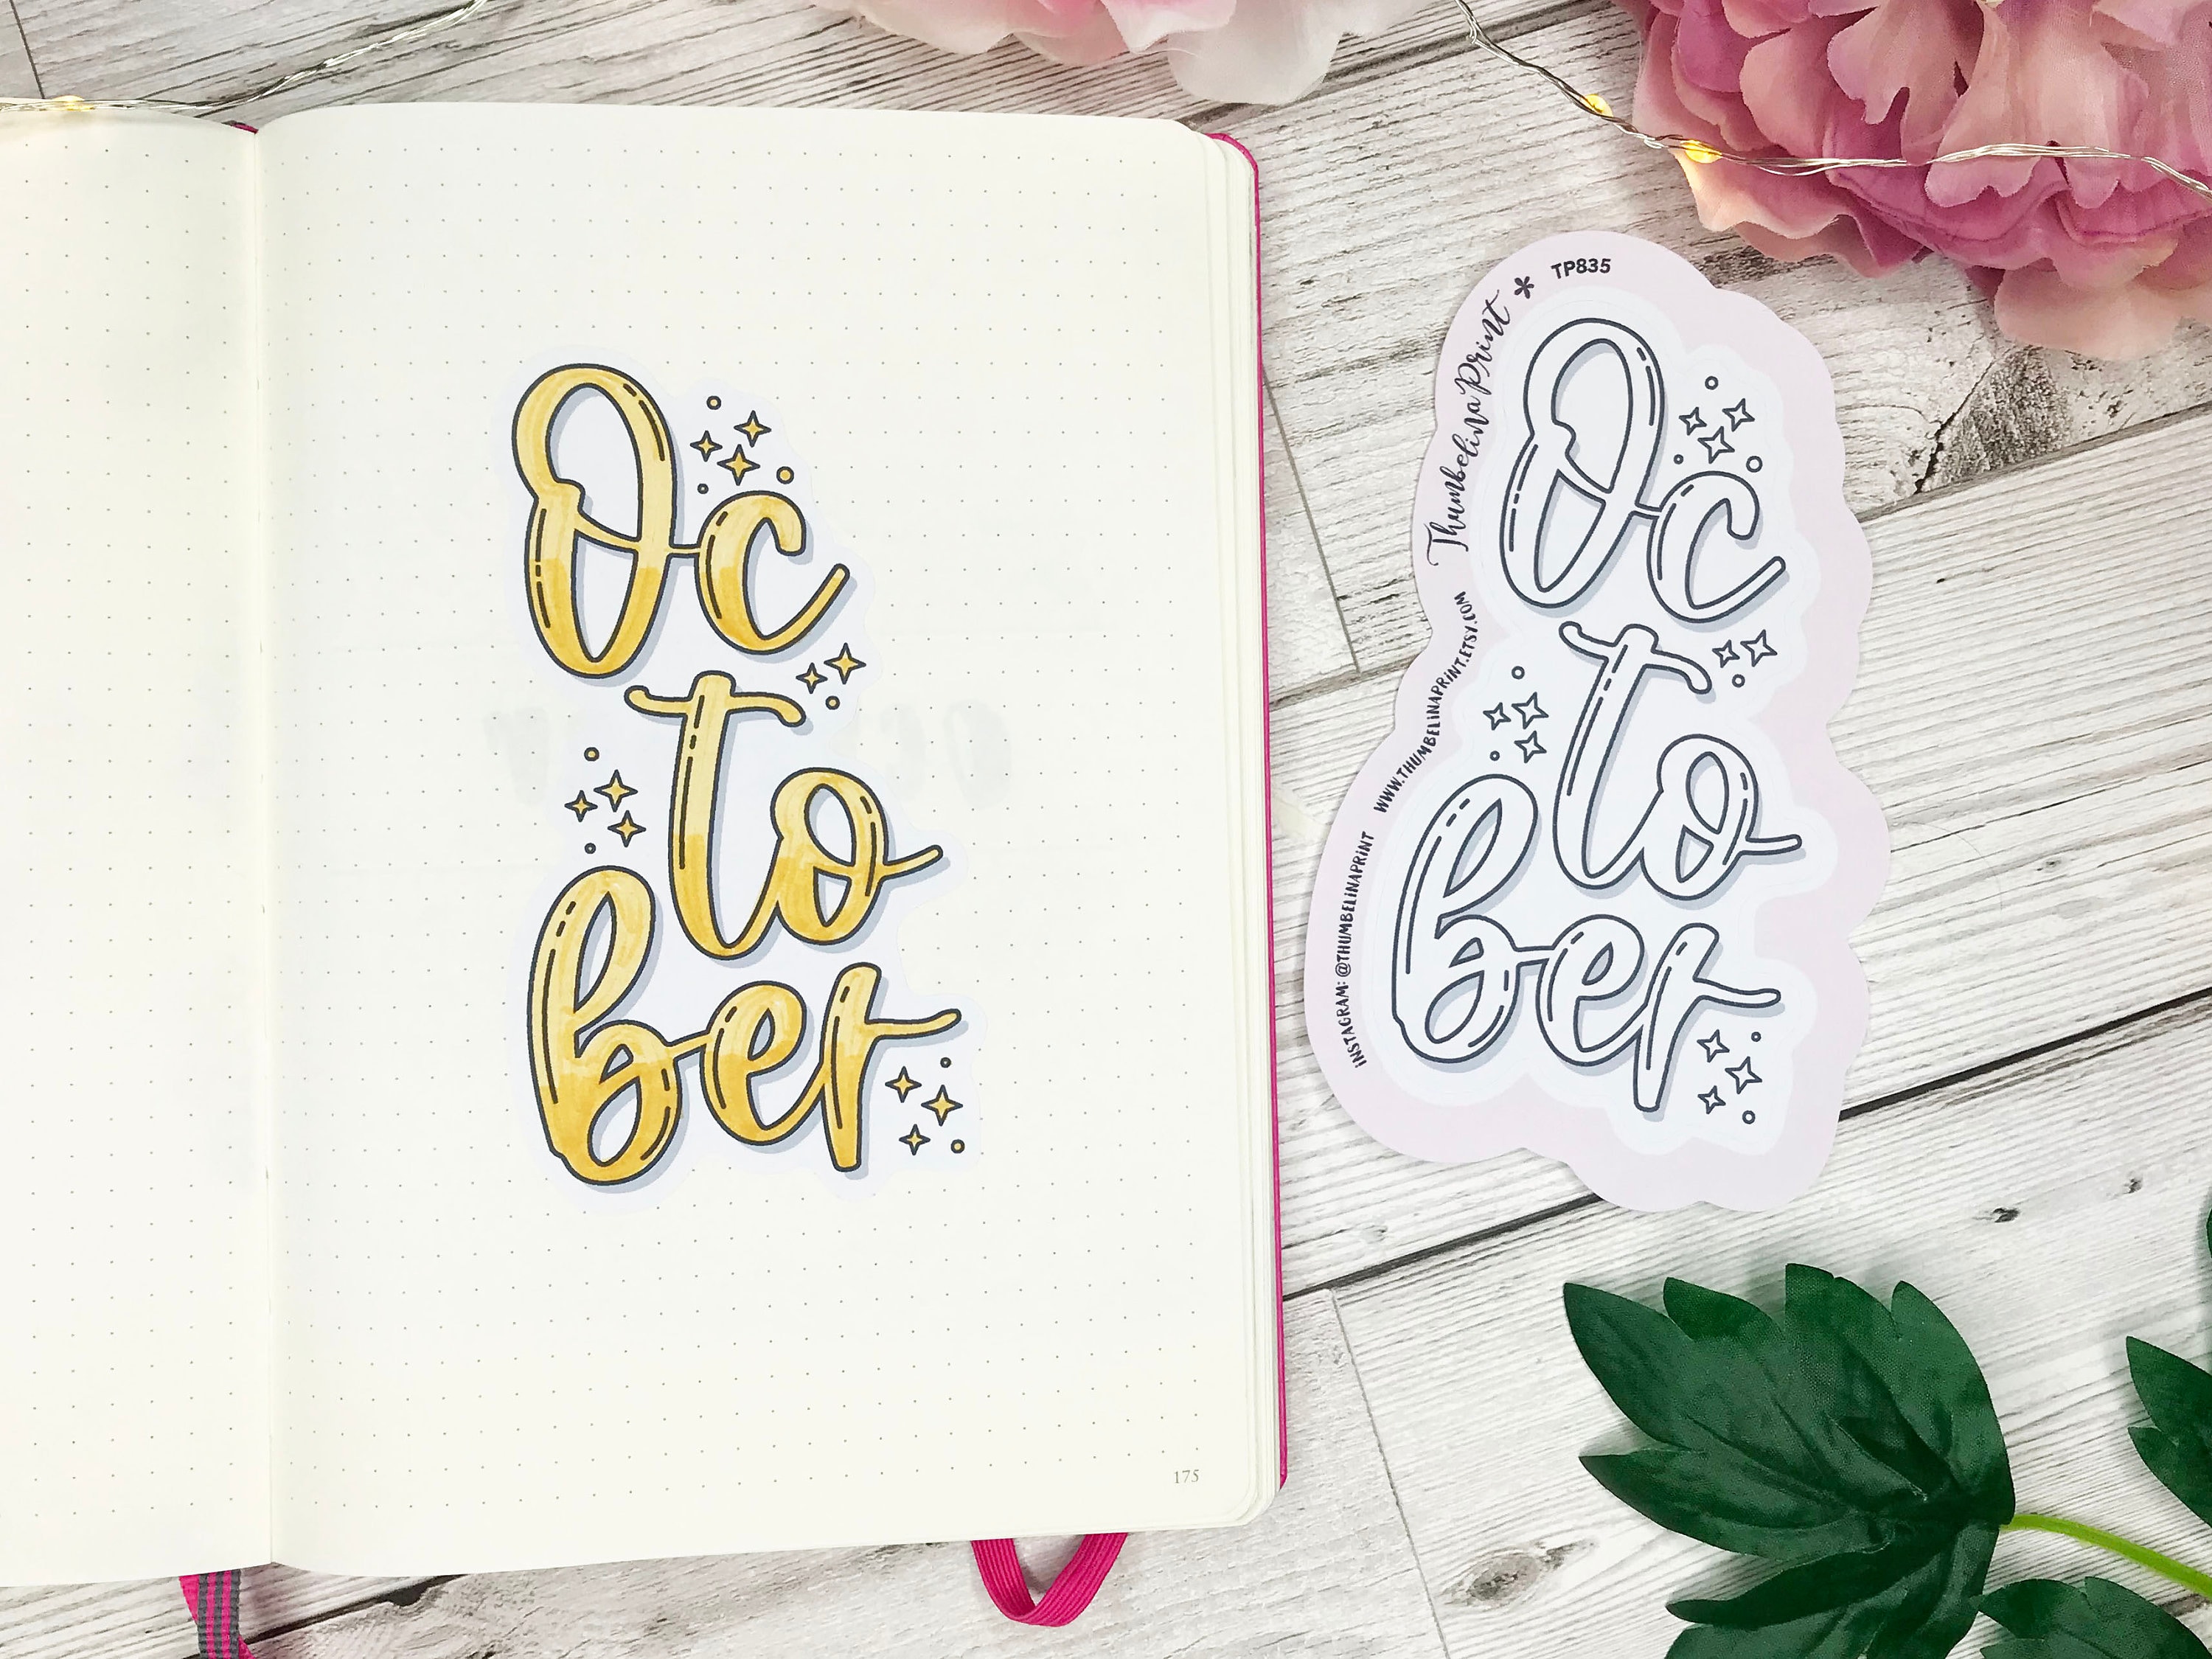 Oc
to
ber
175
Thumbelina Print * TP835
WWW.THUMBELINAPRINT.ETSY.COM
INSTAGRAM: @THUMBELINAPRINT
Oc
to
ber